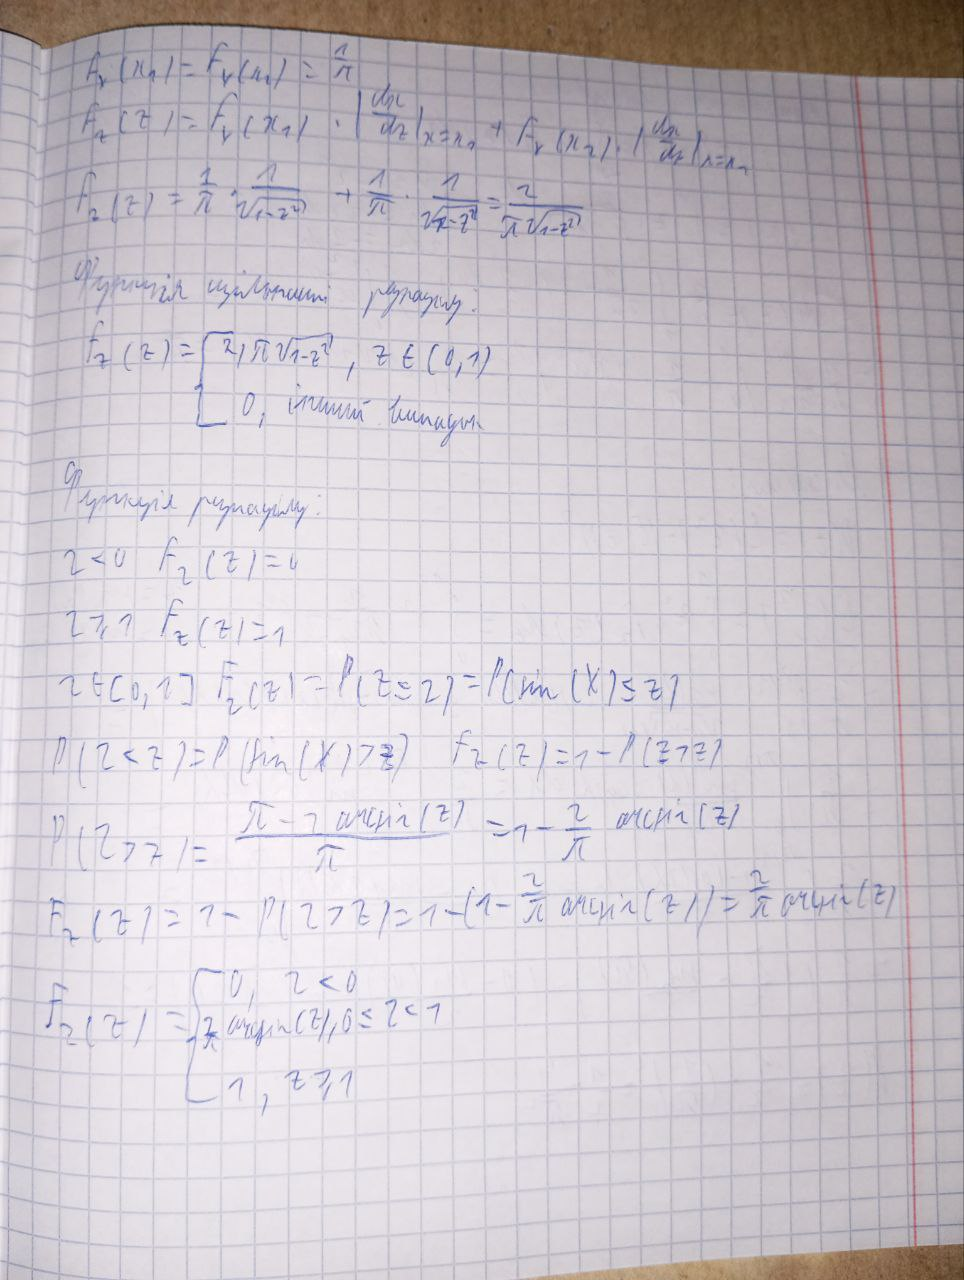 f_x(x_1) = f_x(x_2) = 1/π
f_z(z) = f_x(x_1) · |dx/dz|_{x=x_1} + f_x(x_2) · |dx/dz|_{x=x_2}
f_z(z) = 1/π · 1/√(1-z²) + 1/π · 1/√(1-z²) = 2/(π√(1-z²))
Функція щільності розподілу:
f_z(z) = { 2/π√(1-z²), z ∈ (0,1)
0, інший випадок
Функція розподілу:
z<0 F_z(z)=0
z≥1 F_z(z)=1
z∈[0,1] F_z(z) = P(Z≤z) = P(sin(X)≤z)
P(Z<z) = P(sin(X)>z) F_z(z) = 1-P(z>z)
P(Z>z) = (π - 2 arcsin(z))/π = 1 - 2/π arcsin(z)
F_z(z) = 1 - P(Z>z) = 1-(1-2/π arcsin(z)) = 2/π arcsin(z)
F_z(z) = { 0, z<0
2/π arcsin(z), 0≤z<1
1, z≥1